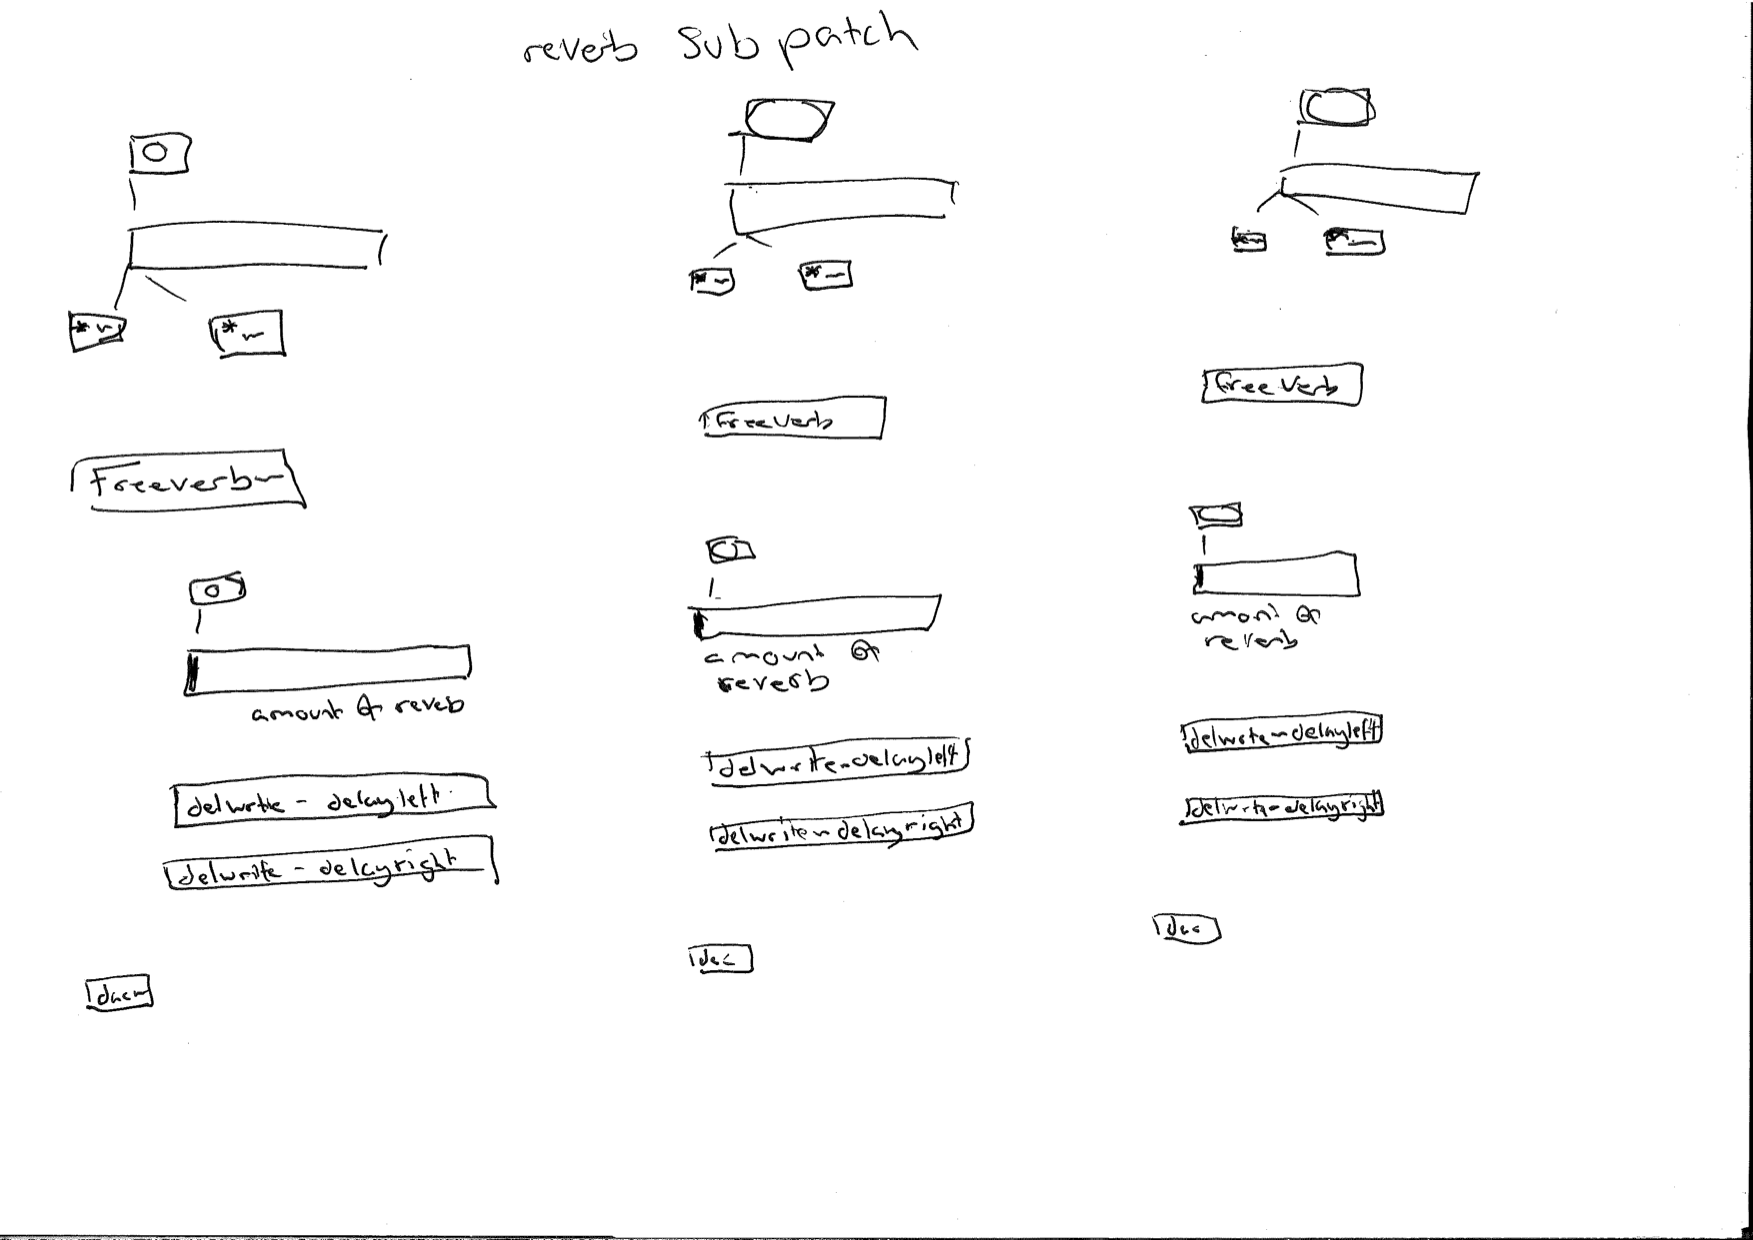 reverb Sub patch
*~ *~
Freeverb~
amount of reveb
delwrite ~ delay left
delwrite ~ delayright
dac~
*~ *~
Freeverb
amount of
reverb
delwrite~delayleft
delwrite~delayright
dac
*~ *~
free Verb
amont of
reverb
delwrte~delayleft
delwrte~delayright
dac